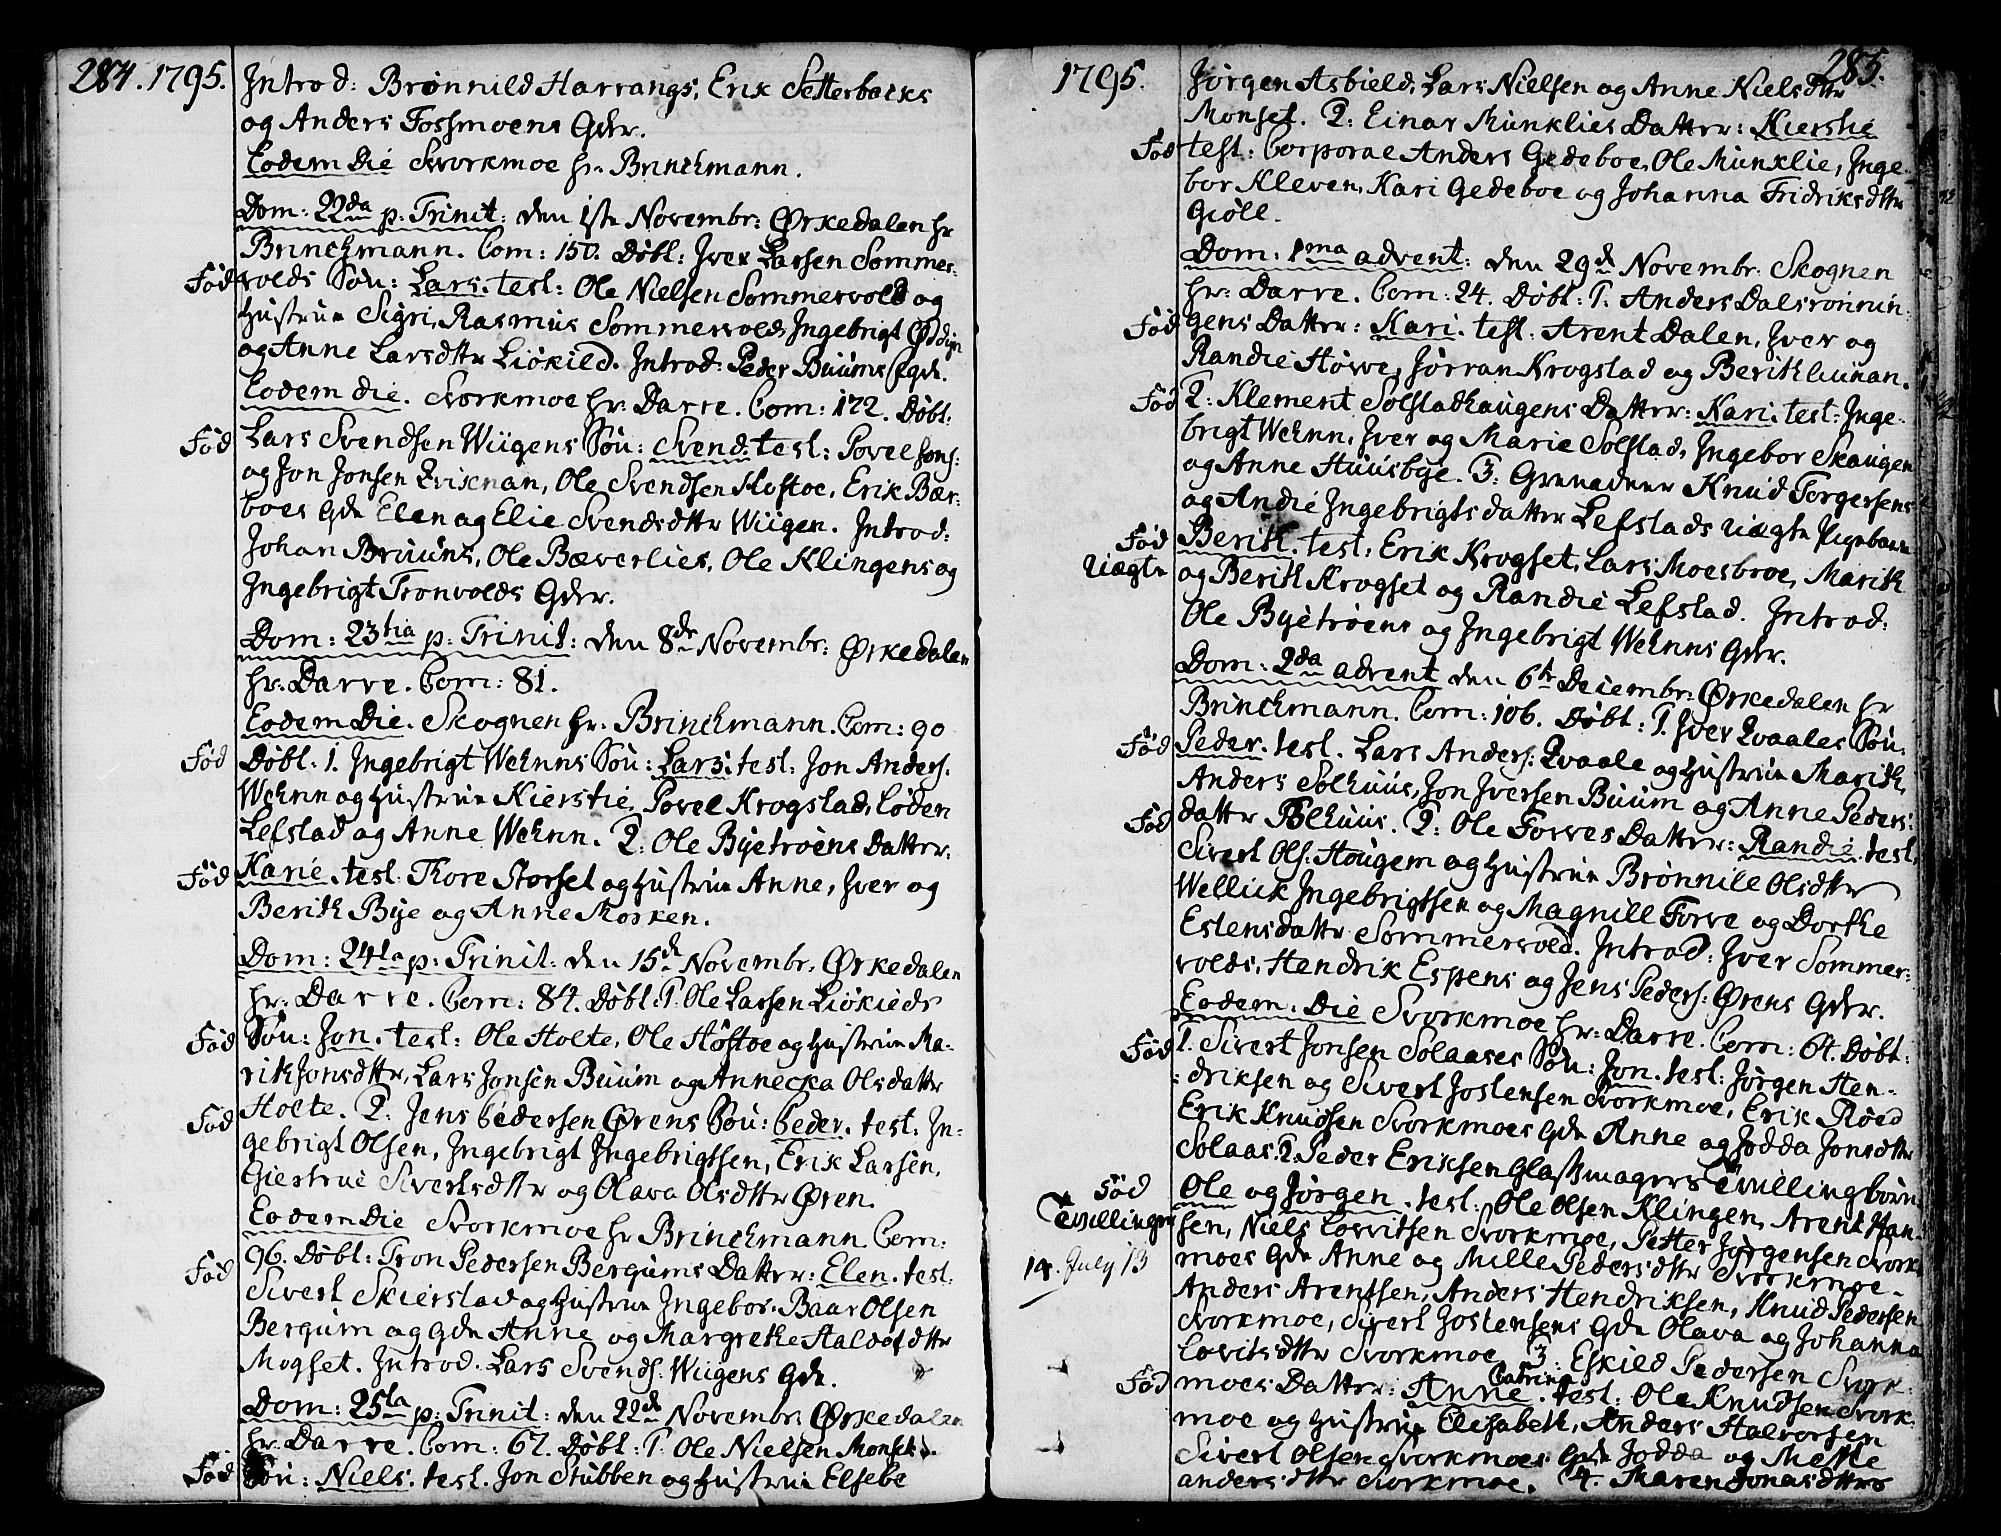 284. 1795.
Introd: Brønnild Harrangs, Erik Setterbacks
og Anders Fossmoens Gdr.
Eodem Die Svorkmoe hr. Brinchmann.
Dom: 22da p: Trinit: den 1ste Novembr: Ørkedalen hr
Brinchmann. Com: 150. Døbl: Iver Larsen Sommer-
Fød volds Søn: Lars. test: Ole Nielsen Sommervold og
Hustrue Sigri, Rasmus Sommervold, Ingebrigt
og Anne Larsdttr Liökild. Introd: Peder Buums Gdr.
Eodem die. Svorkmoe hr: Darre. Com: 172. Døbl:
Fød Lars Svendsen Wiigens Søn: Svend. test: Povel Jons:
og Jon Jonsen Qvisnan, Ole Svendsen Hoftoe, Erik Bær-
boes Gde Elen og Elie Svendsdttr Wiigen. Introd:
Johan Bruuns, Ole Bæverlies, Ole Klingens og
Ingebrigt Tronvolds Gdr.
Dom: 23tia p: Trinit: den 8de Novembr: Ørkedalen
hr: Darre. Com: 81.
Eodem Die. Skognen hr. Brinchmann. Com: 90
Fød Døbl: 1. Ingebrigt Wehnns Søn: Lars. test: Jon Anders:
Wehnn og Hustrue Kierstie, Povel Krogstad, Loden
Lefstad og Anne Wehnn. 2: Ole Byetrøens Datter:
Fød Karie. test: Thore Storset og Hustrue Anne, Iver og
Berith Bye og Anne Mosken.
Dom: 24ta p: Trinit: den 15de Novembr. Ørkedalen
hr: Darre. Com: 84. Døbl: 1. Ole Larsen Liökilds
Fød Søn: Jon. test: Ole Holte, Ole Hoftoe og Hustrue Ma-
rith Jonsdttr, Lars Jonsen Buum og Annecka Olsdattr
Fød Holte. 2: Jens Pedersen Ørens Søn: Peder. test. In-
gebrigt Olsen, Ingebrigt Ingebrigtsen, Erik Larsen,
Giertrue Sivertsdttr og Olava Olsdttr Øren.
Eodem Die Svorkmoe hr Brinchmann. Com:
Fød 96. Døbl: Tron Pedersen Bergums Datter: Elen. test:
Sivert Skierstad og Hustrue Ingebor, Baar Olsen
Bergum og Gde Anne og Margrethe Haldosdttr
Mogset. Introd. Lars Svends: Wiigens Gde.
Dom: 25ta p: Trinit: den 22de Novembr. Ørkedalen
hr. Darre. Com: 67. Døbl: 1. Ole Nielsen Monsets
Fød Søn: Niels. test. Jon Stubben og Hustrue Elsebe
1795. 285.
Jørgen Asbield, Lars Nielsen og Anne Nielsdttr
Monset. 2: Einar Munklies Datter: Kierstie
Fød test: Corporal Anders Gedeboe, Ole Munklie, Inge-
bor Kleven, Kari Gedeboe og Johanna Fridriksdttr
Giöll.
Dom: 1ma advent: den 29de Novembr: Skognen
hr: Darre. Com: 24. Døbl: 1. Anders Dalsrønnin-
Fød gens Datter: Kari. test. Arent Dalen, Iver og
Randie Høsve, Jørran Krogstad og Berith
Fød 2: Klement Solstadhaugens Datter: Kari. test: Inge-
brigt Wehnn, Iver og Marie Solstad, Ingebor Skaugen
og Anne Huusbye. 3: Grenadeer Knud Torgersens
og Andie Ingebrigtsdatter Lefstads uægte Pigebarn
Fød uægte Berith. test: Erik Krogset, Lars Moesbroe, Marith
og Berith Krogset og Randie Lefstad. Introd:
Ole Byetrøens og Ingebrigt Wehnns Gdr.
Dom: 2da advent den 6te Decembr: Ørkedalen hr
Brinchmann. Com: 106. Døbl: 1. Iver Qvaales Søn:
Fød Peder. test. Lars Anders: Qvaale og Hustrue Marith,
Anders Solhuus, Jon Iversen Buum og Anne Peders:
Fød dattr Solhuus. 2: Ole Forves Datter: Randie. test.
Sivert Ols: Hougem og Hustrue Brønnild Olsdttr
Wellick Ingebrigtsen og Magnill Forve og Dorthe
Estensdattr Sommervold. Introd: Iver Sommer:
volds, Hendrik Espens og Jens Peders: Ørens Gdr.
Eodem: Die Svorkmoe hr: Darre. Com: 67. Døbt:
Fød 1. Sivert Jonsen Solaases Søn: Jon. test: Jørgen Hen-
driksen og Sivert Jostensen Svorkmoe, Erik Røed
Erik Knudsen Svorkmoes Gde Anne og Jodda Jonsdttr
Solaas. 2. Peder Eriksen Glassmagers Tvillingbørn
Fød Tvillinger Ole og Jørgen. test: Ole Olsen Klingen, Arent Han-
sen, Niels Lovvitsen Svorkmoe, Petter Jørgensen Svork
14. July 13 moes Gde Anne og Mille Pedersdttr Svorkmoe.
Anders Arentsen, Anders Hendriksen, Knud Pedersen
Svorkmoe, Sivert Jostensens Gde Olava og Johanna
Lovitsdttr Svorkmoe. 3: Eskild Pedersen Svork-
Fød moes Datter: Anne Catrina. test: Ole Knudsen Svork
moe og Hustrue Elisabeth, Anders Halvorsen
Sivert Olsen Svorkmoes Gde Jodda og Mette
andersdttr Svorkmoe. 4. Maren Jonasdttrs